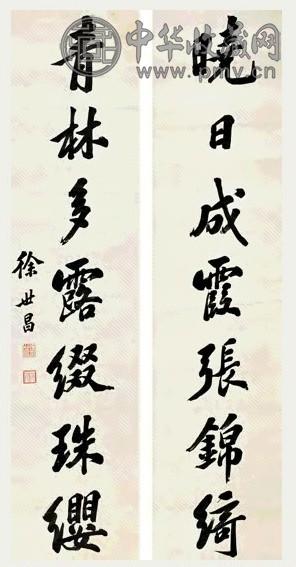 中华收藏网
www.pmv.cn
曉日成霞張錦綺
青林多露綴珠纓
徐世昌